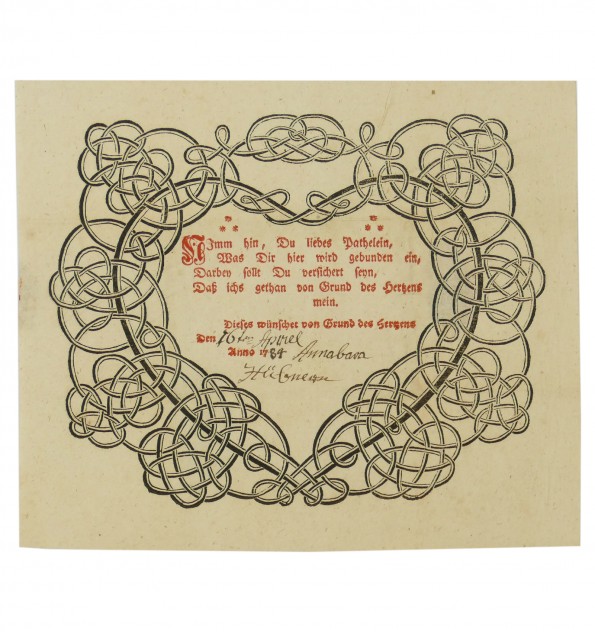 Nimm hin, Du liebes Pathelein,
Was Dir hier wird gebunden ein,
Darbey sollt Du versichert seyn,
Daß ichs gethan von Grund des Hertzens
mein.
Dieses wünschet von Grund des Hertzens
Den 16ten Appriel
Anno 1784 Annabara